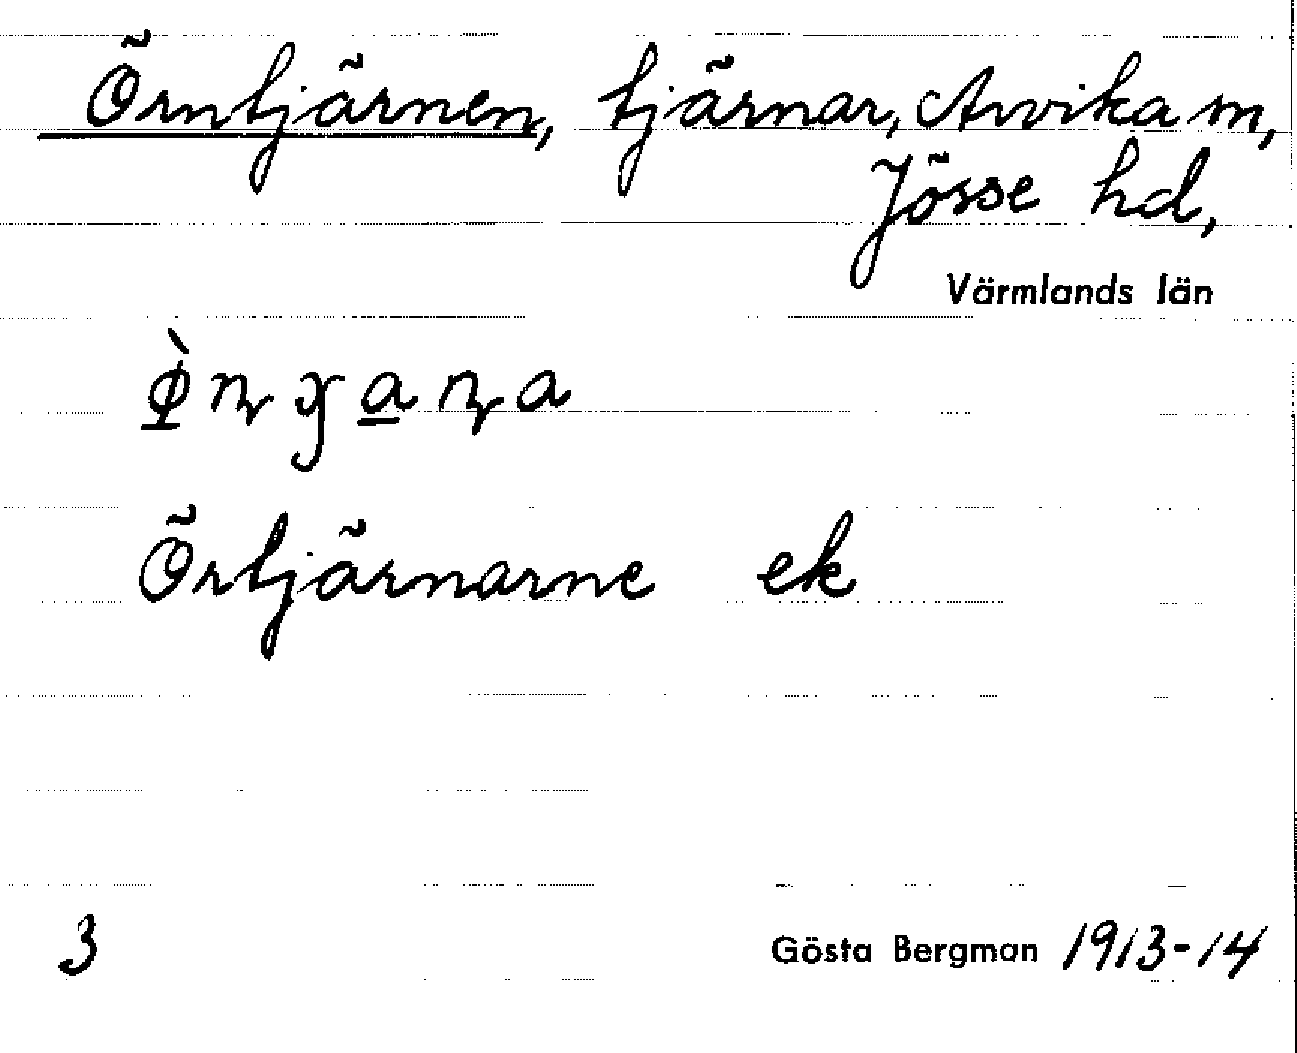 Örntjärnen, tjärnar, Arvika m,
Jösse hd,
Värmlands län
Örtjärnarne ek
3
Gösta Bergman 1913-14